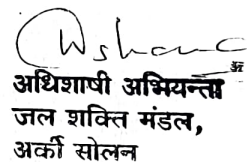 अधिशाषी अभियन्ता
जल शक्ति मंडल,
अर्की सोलन